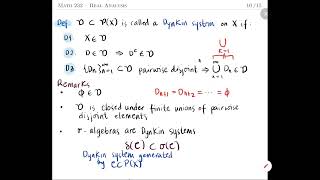 MATH 232 - REAL ANALYSIS 10/15
Def: D ⊂ P(X) is called a Dynkin system on X if:
D1. X ∈ D
D2. D ∈ D ⇒ Dᶜ ∈ D
D3. {Dₙ}ₙ₌₁^∞ ⊂ D pairwise disjoint ⇒ ⋃ₙ₌₁^∞ Dₙ ∈ D
Remarks
• ϕ ∈ D
Dₙ₊₁ = Dₙ₊₂ = ⋯ = ϕ
• D is closed under finite unions of pairwise
disjoint elements
• σ-algebras are Dynkin systems
δ(C) ⊂ σ(C)
Dynkin system generated
by C ⊂ P(X)